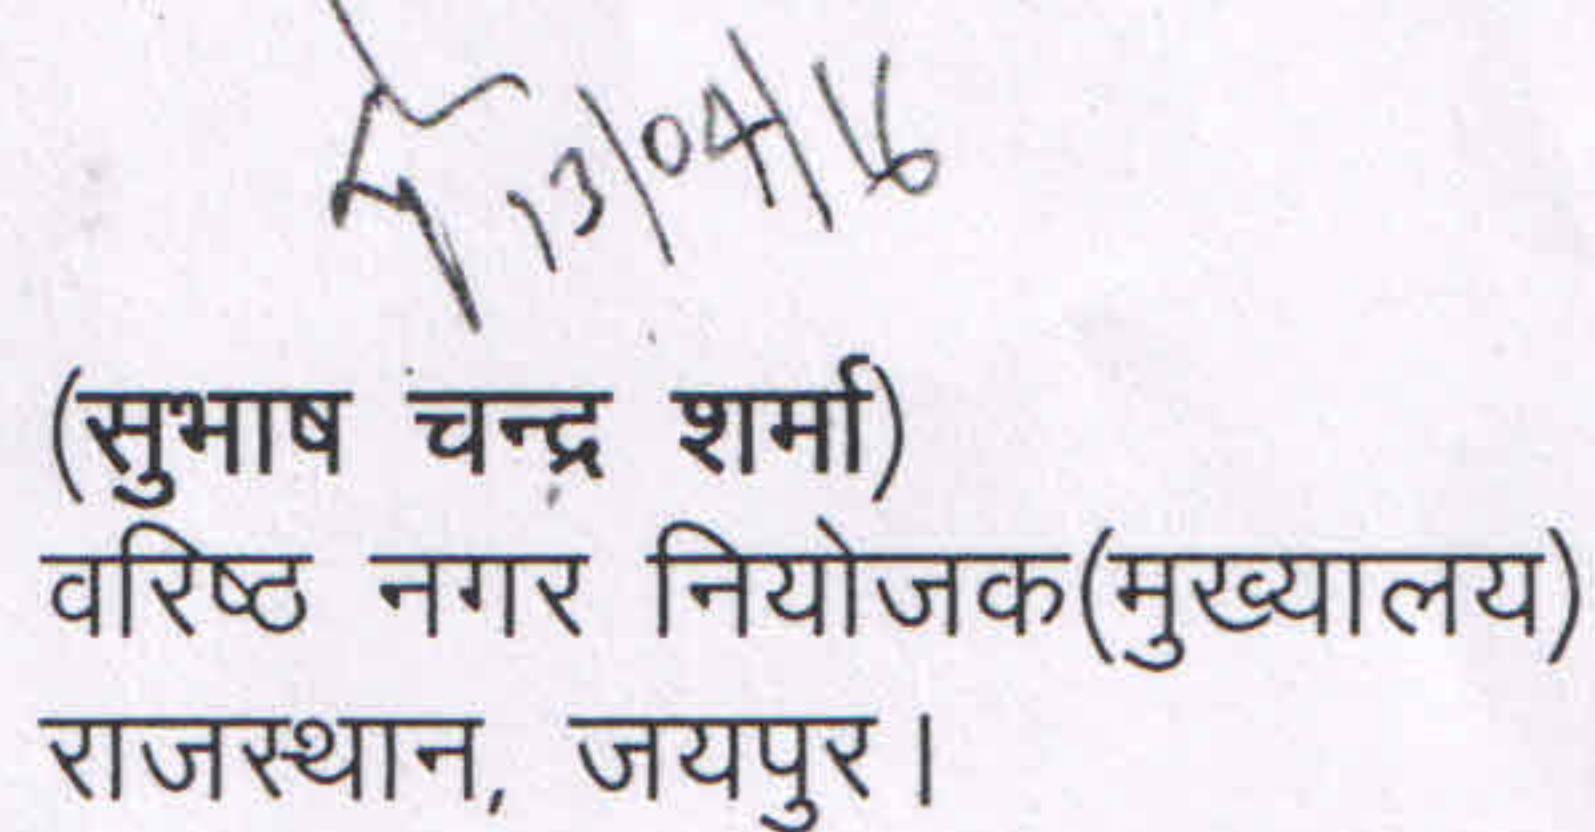 13/04/16
(सुभाष चन्द्र शर्मा)
वरिष्ठ नगर नियोजक(मुख्यालय)
राजस्थान, जयपुर।